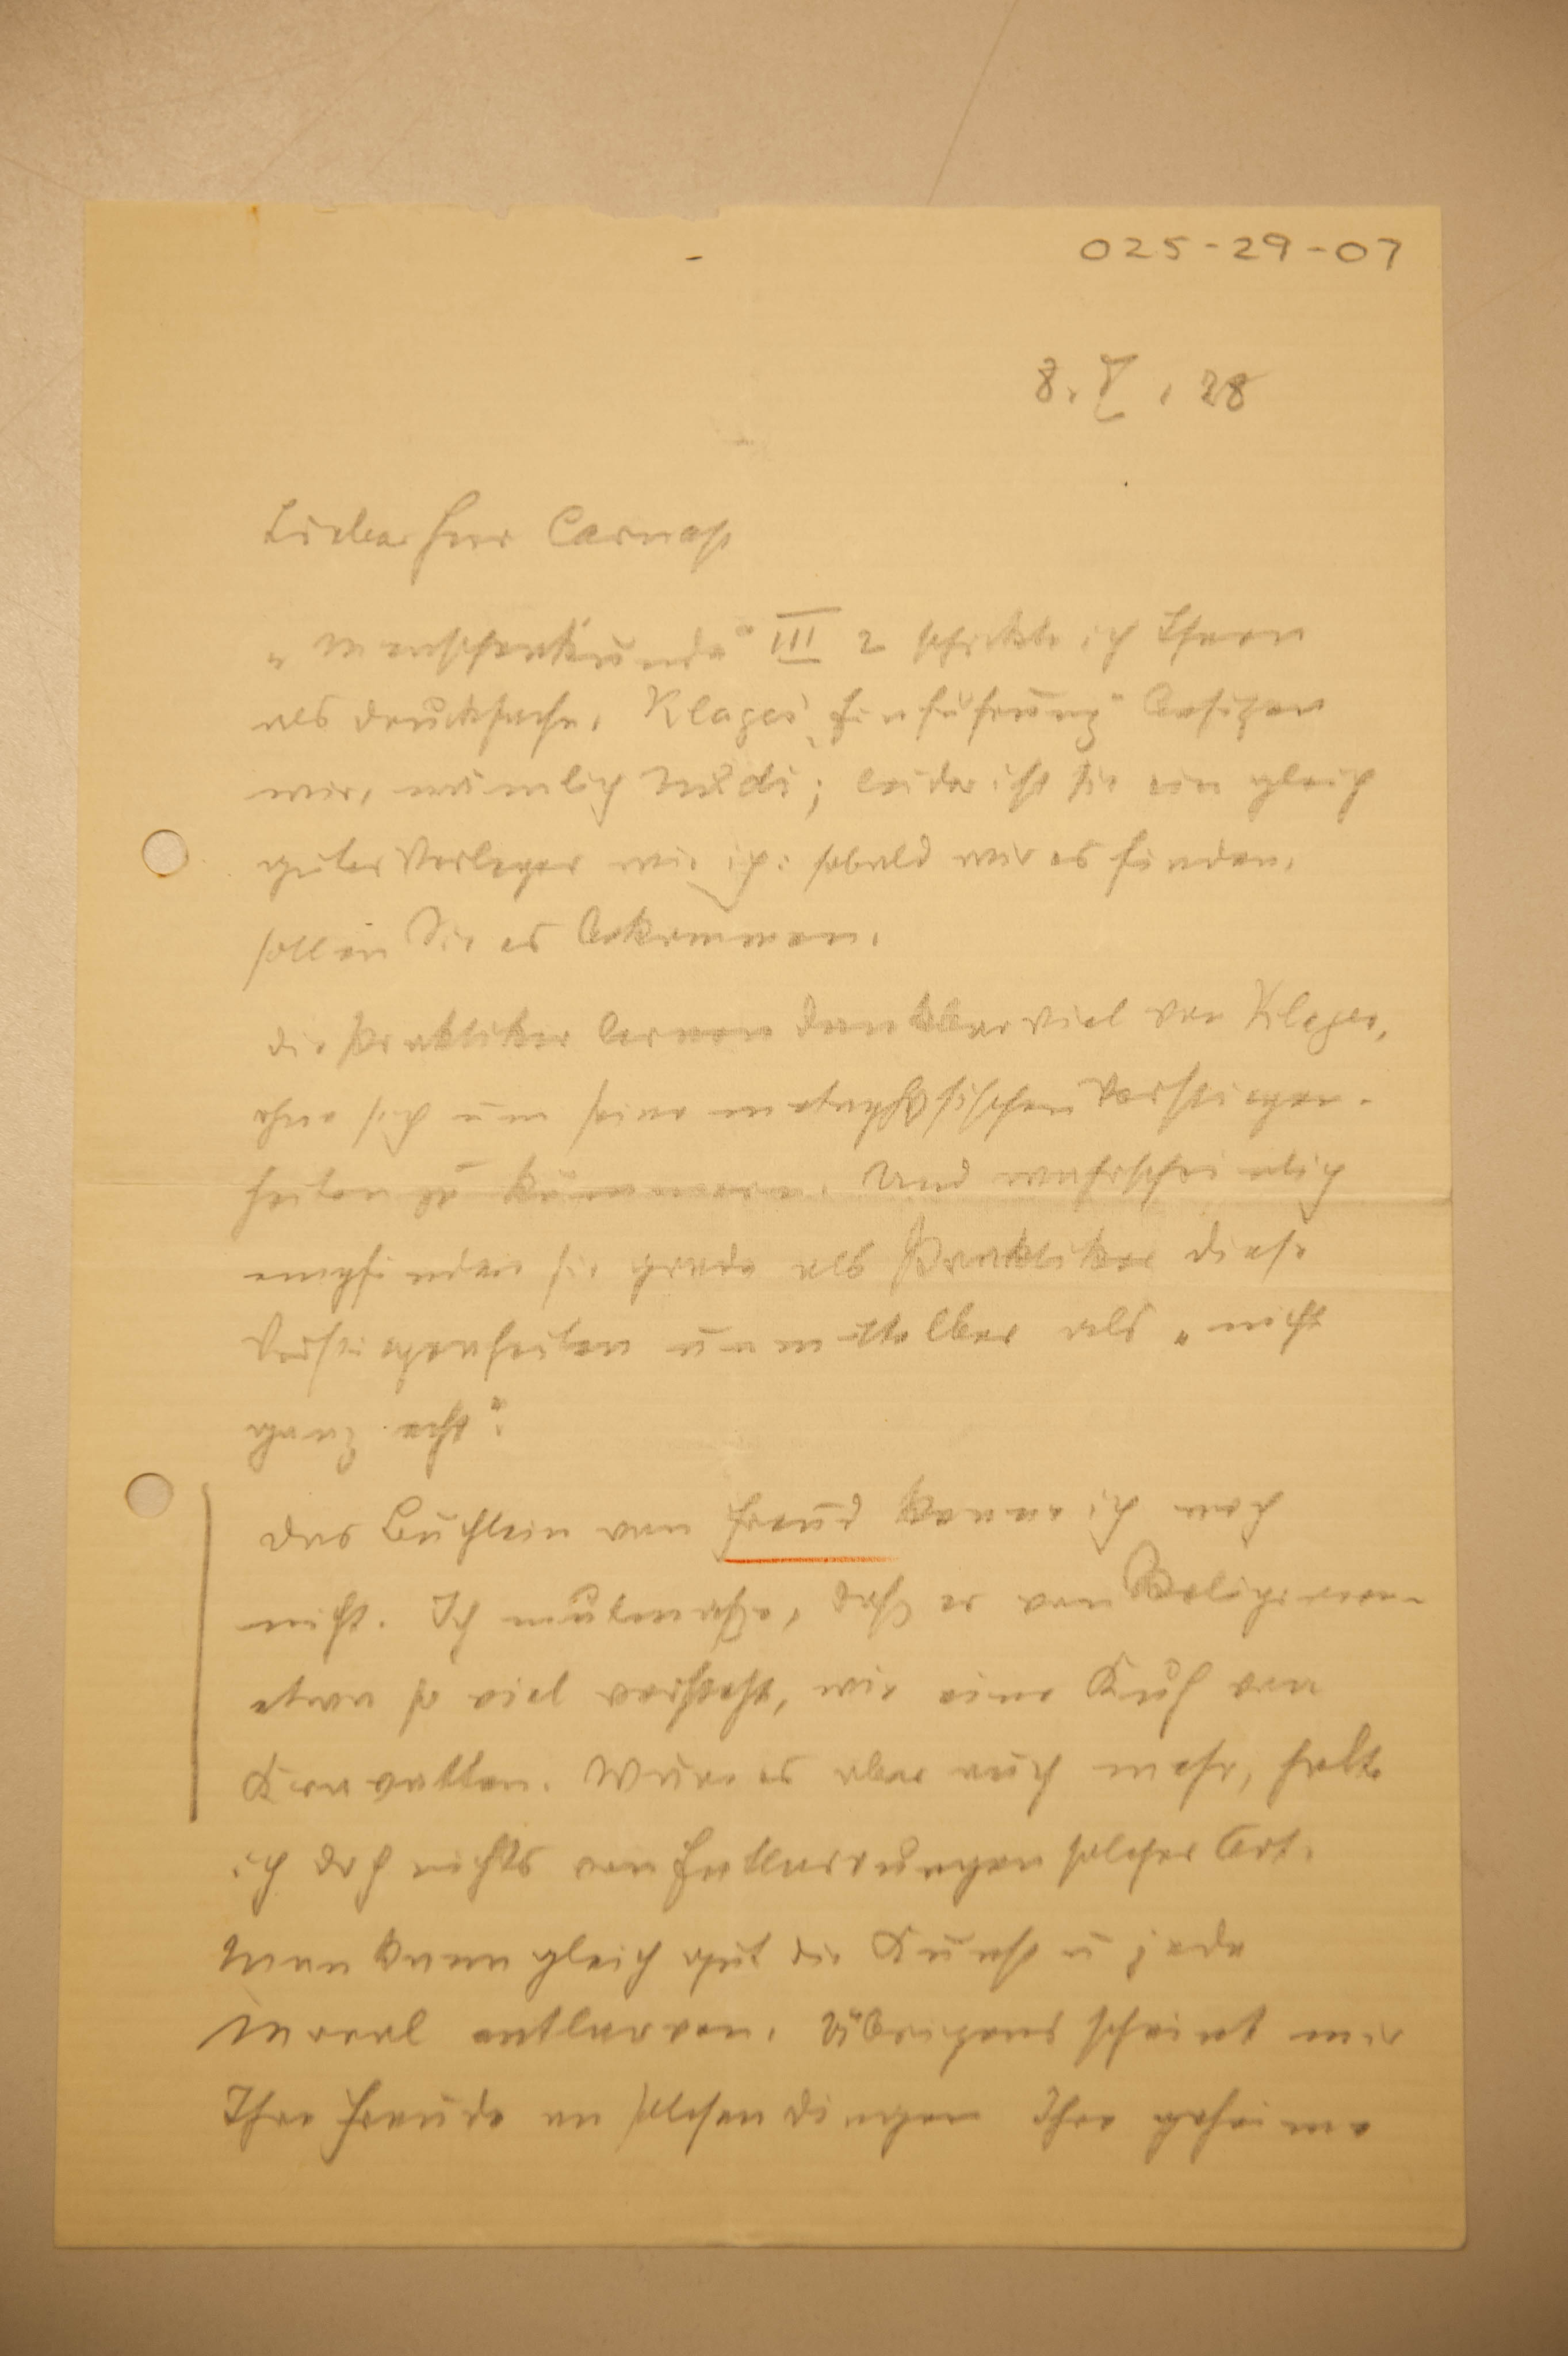 025-29-07
8. I. 28
Lieber Herr Carnap
„Menschenkunde“ III 2 schickte ich Ihnen
als Drucksache. Klages' „Einführung“ besitzen
wir, nämlich Mädi; leider ist sie ein gleich
guter Verleger wie ich: sobald wir es finden,
sollen Sie es bekommen.
Die Praktiker lernen dankbar viel von Klages,
ohne sich um seine metaphysischen Verstiegen-
heiten zu kümmern. Und wahrscheinlich
empfinden sie grade als Praktiker diese
Verstiegenheiten unmittelbar als „nicht
ganz echt“.
Das Büchlein von Freud kenne ich noch
nicht. Ich mutmaße, daß er von Religionen
etwa so viel versteht, wie eine Kuh von
Kravatten. Wäre es aber auch mehr, halte
ich doch nichts von Entlarvungen solcher Art.
Man kann gleich gut die Kunst u jede
Moral entlarven. Übrigens scheint mir
Ihre Freude an solchen Dingen Ihre geheime